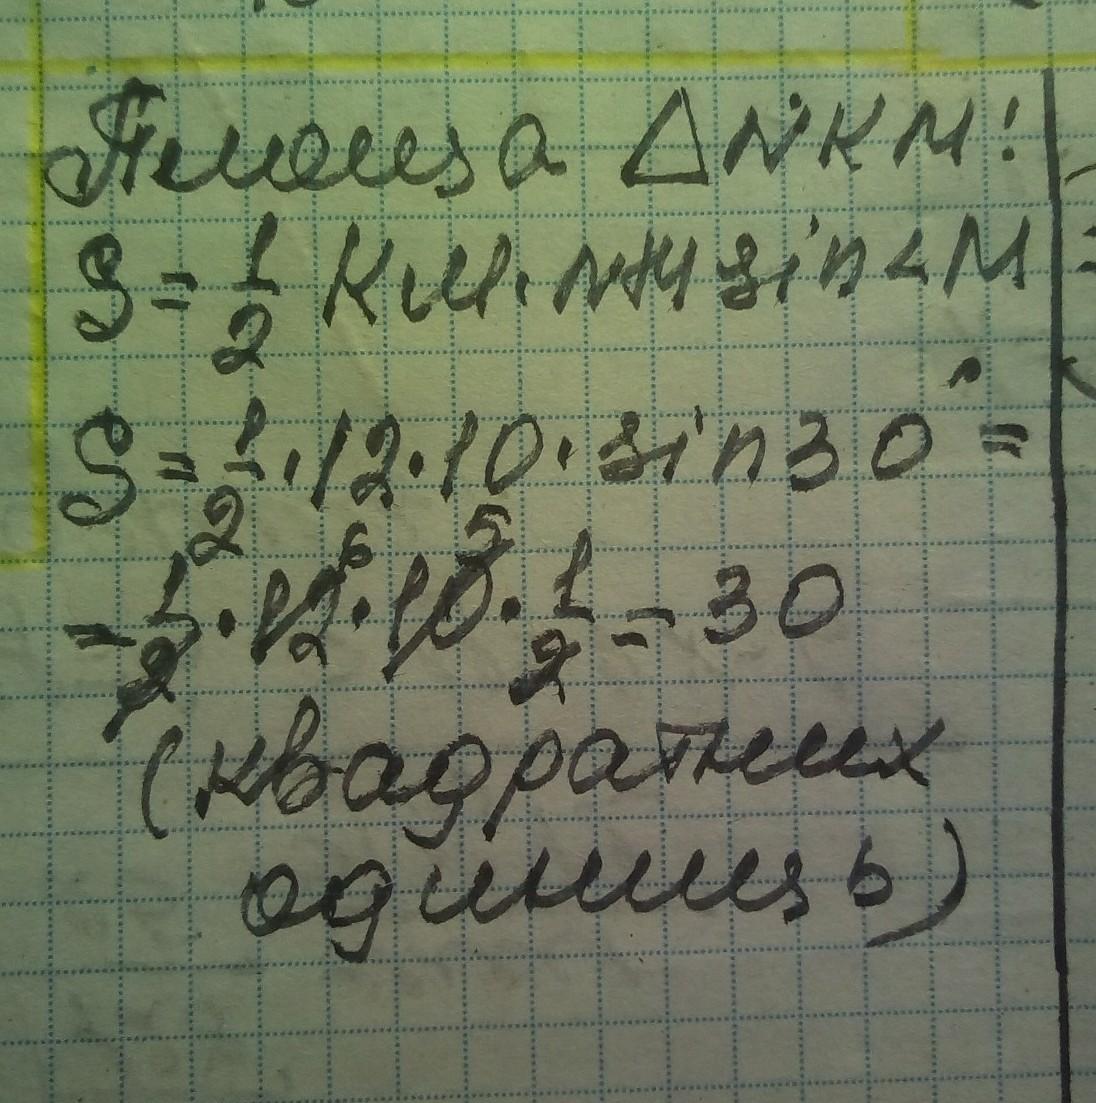 Площа △NKM:
S = 1/2 KM · NM sin∠M
S = 1/2 · 12 · 10 · sin 30° =
= 1/2 · 12 6 · 10 5 · 1/2 = 30
(квадратних
одиниць)